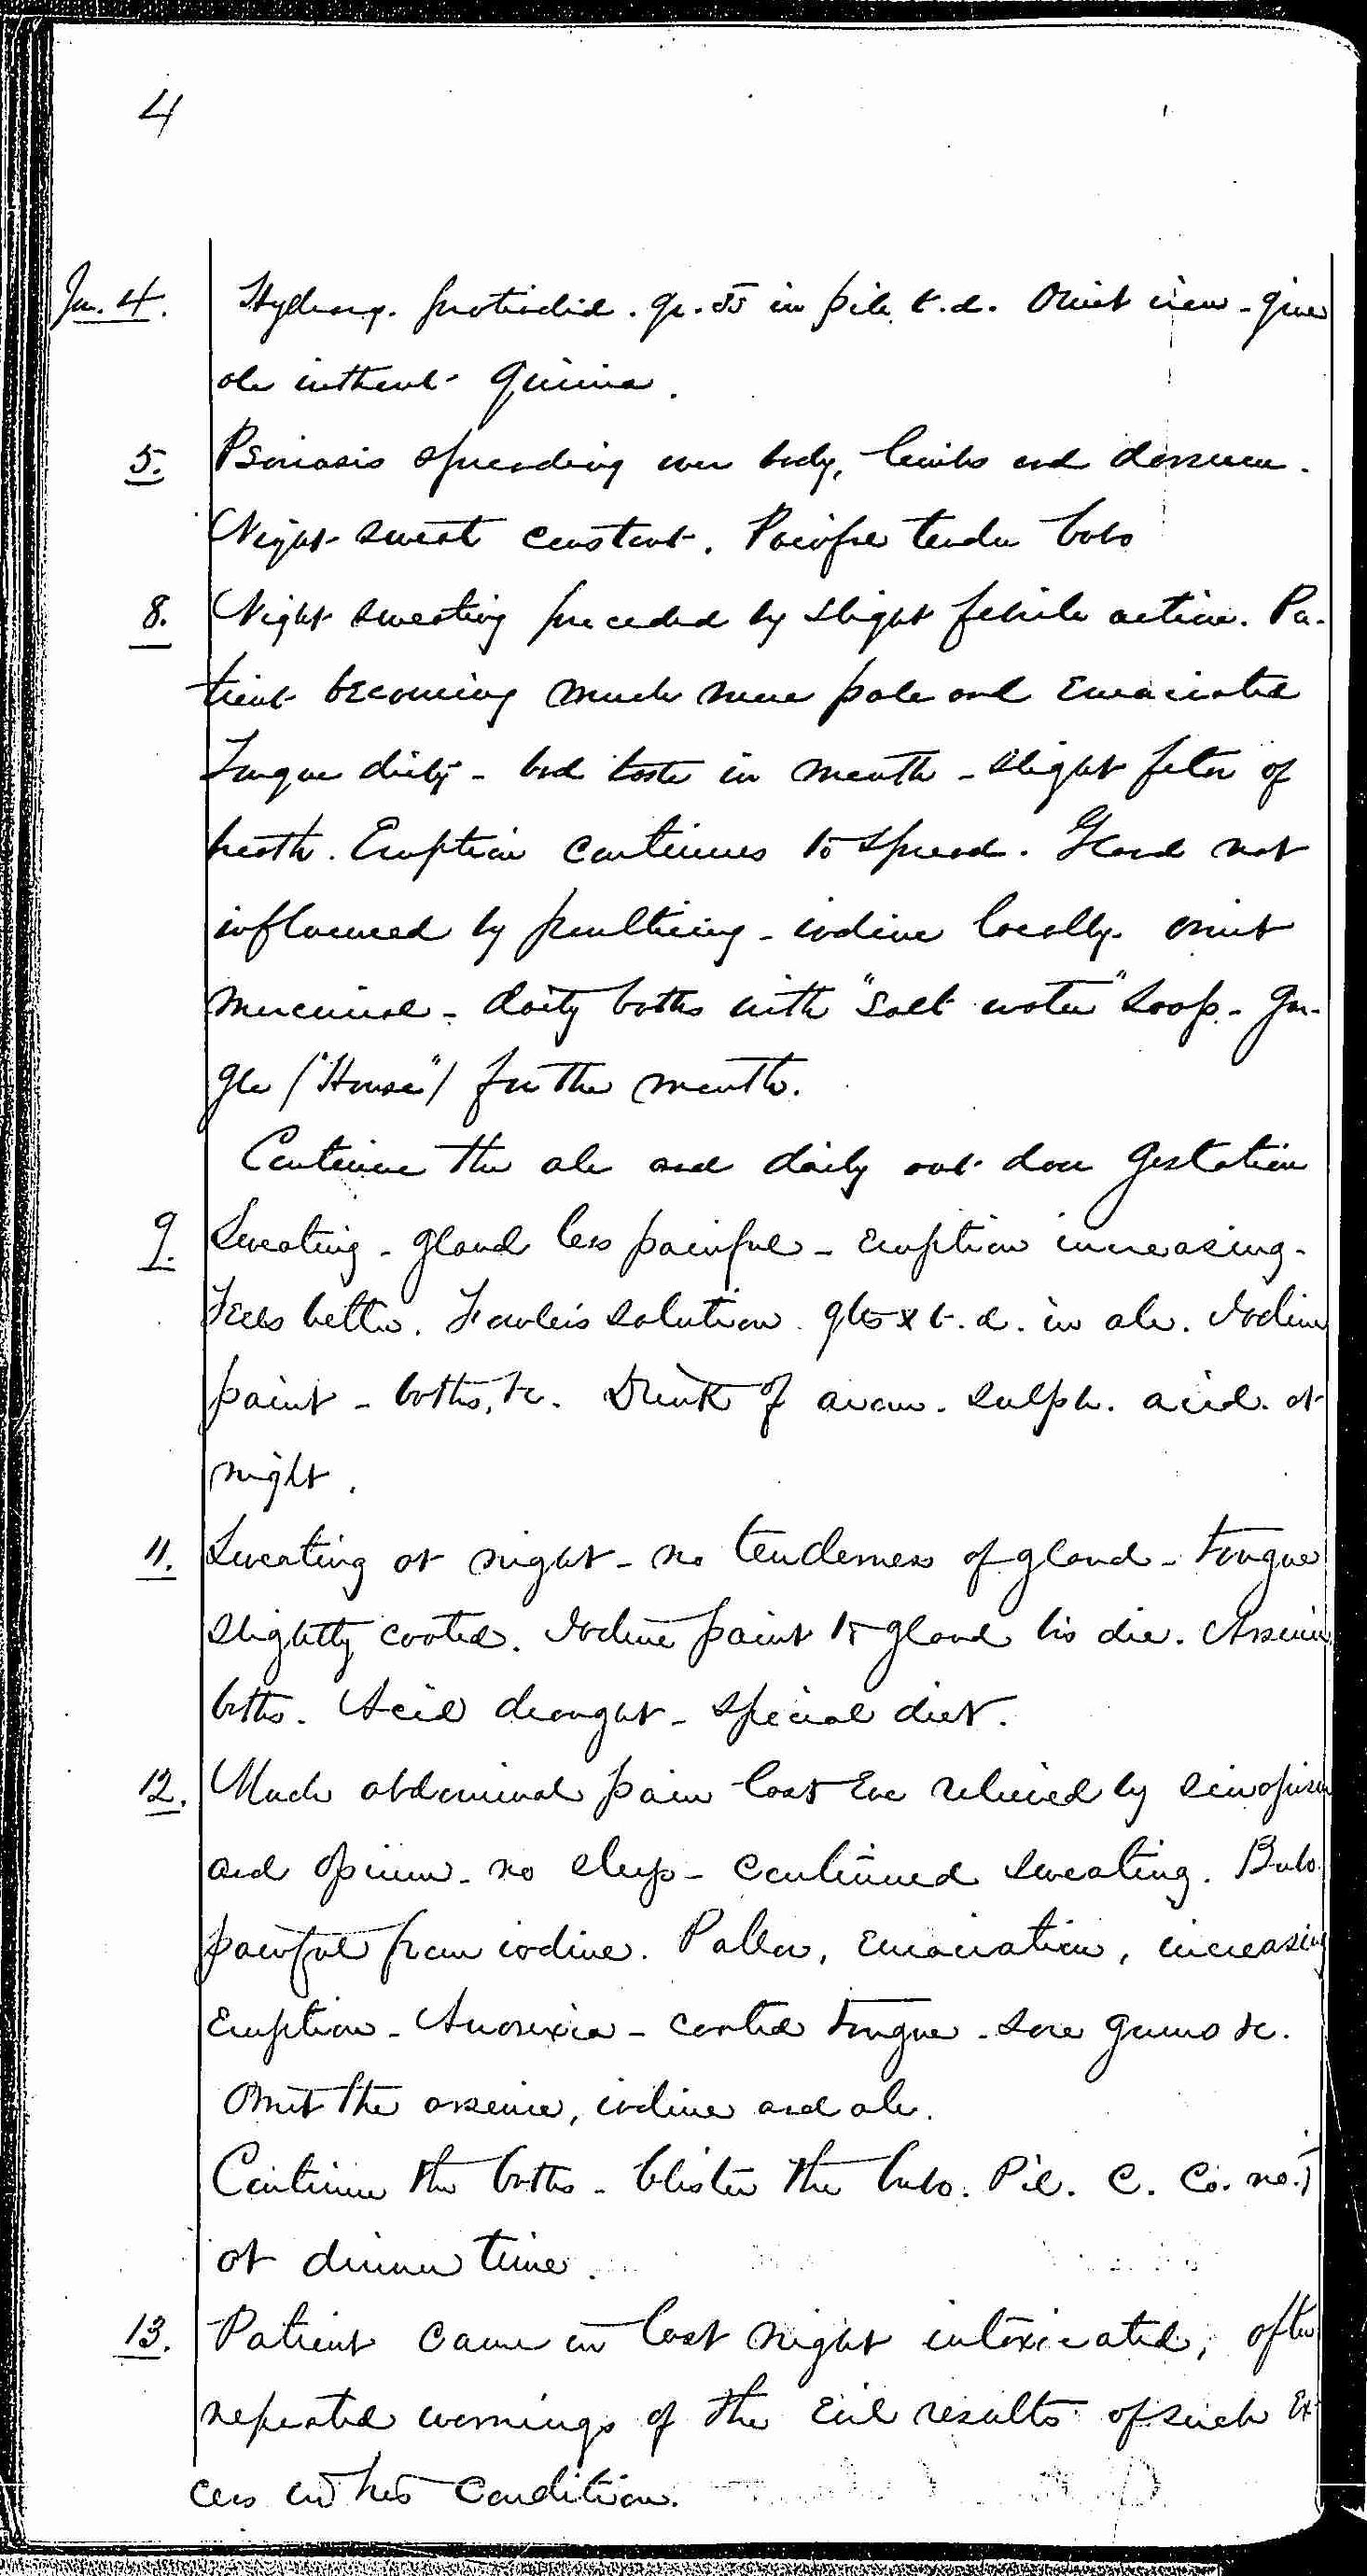 4
Jan. 4. Hydrarg. protiodid. gr. ss in pil. t.d. Omit iron - give
ale without quinia.
5. Psoriasis spreading over body, limbs and dorsum.
Night sweat constant. Painful tender bubo
8. Night sweating preceded by slight febrile action. Pa-
tient becoming much more pale and emaciated
Tongue dirty - bad taste in mouth - slight fetor of
breath. Eruption continues to spread. Gland not
influenced by poulticing - iodine locally. Omit
mercurial - daily baths with "salt water" soap - Gar-
gle ("House") for the mouth.
Continue the ale and daily out door gestation
9. Sweating - gland less painful - eruption increasing.
Feels better. Fowler's solution gtts x t.d. in ale. Iodine
paint - baths, &c. Drink of arom. sulph. acid at
night.
11. Sweating at night - no tenderness of gland - tongue
slightly coated. Iodine paint to gland bis die. Arsenic
baths. Acid draught - special diet.
12. Much abdominal pain last eve relieved by sinapism
and opium - no sleep - continued sweating. Bubo
painful from iodine. Pallor, emaciation, increasing
eruption - Anorexia - coated tongue - sore gums &c.
Omit the arsenic, iodine and ale.
Continue the baths - blister the bubo. Pil. C. Co. no. i
at dinner time.
13. Patient came in last night intoxicated, after
repeated warnings of the evil results of such ex-
cess in his condition.